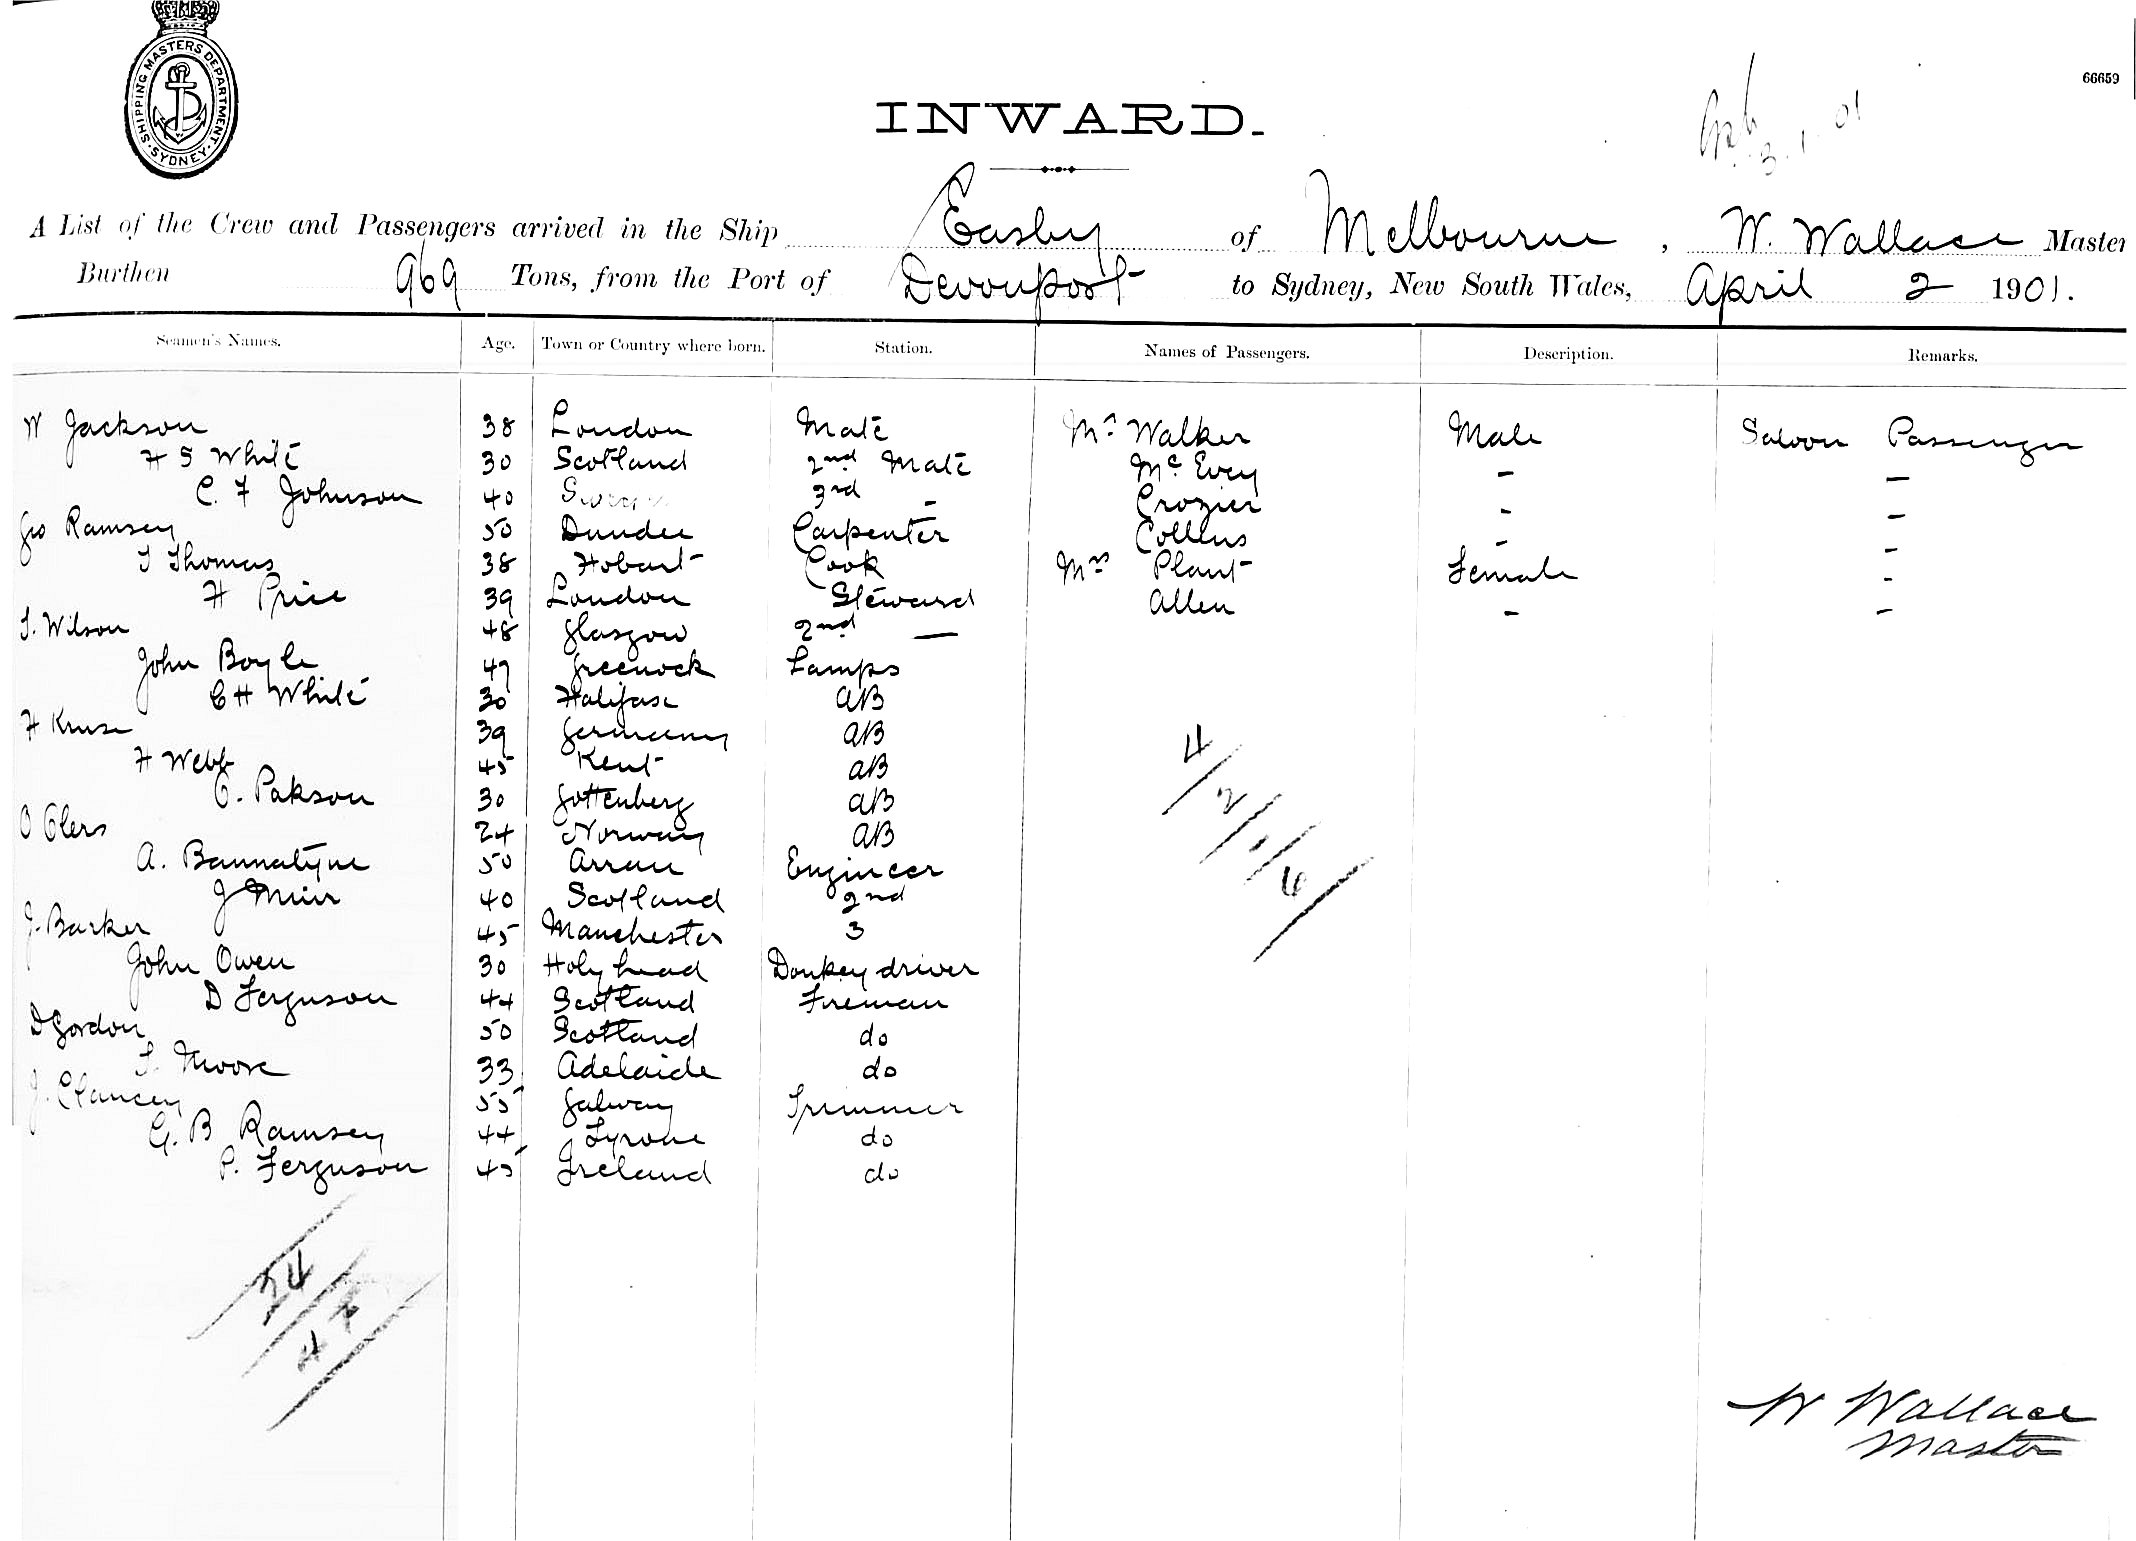 SHIPPING MASTERS DEPARTMENT. SYDNEY
66659
3.1.01
INWARD.
A List of the Crew and Passengers arrived in the Ship Easby of Melbourne, W. Wallace Master
Burthen 969 Tons, from the Port of Devonport to Sydney, New South Wales, April 2 1901.
Seamen's Names. Age. Town or Country where born. Station. Names of Passengers. Description. Remarks.
W Jackson 38 London Mate Mr Walker Male Saloon Passenger
H S White 30 Scotland 2nd Mate McEvey - -
C. F Johnson 40 3rd - Crozier - -
Geo Ramsey 50 Dundee Carpenter Collins - -
T Thomas 38 Hobart Cook Mrs Plant Female -
H Price 39 London Steward Allen - -
T. Wilson 48 Glasgow 2nd —
John Boyle 49 Greenock Lamps
C H White 30 Halifax AB
H Kruse 39 Germany AB
H Webb 45 Kent AB
C. Pakson 30 Gottenberg AB
O Olers 24 Norway AB
A. Bannatyne 50 Arran Engineer
J Muir 40 Scotland 2nd
J. Barker 45 Manchester 3
John Owen 30 Holyhead Donkey driver
D Ferguson 44 Scotland Fireman
D Gordon 50 Scotland do
T. Moore 33 Adelaide do
J. Clancey 55 Galway Trimmer
G. B Ramsey 44 Tyrone do
P. Ferguson 45 Ireland do
4/2/1/6/
24/
W Wallace
Master